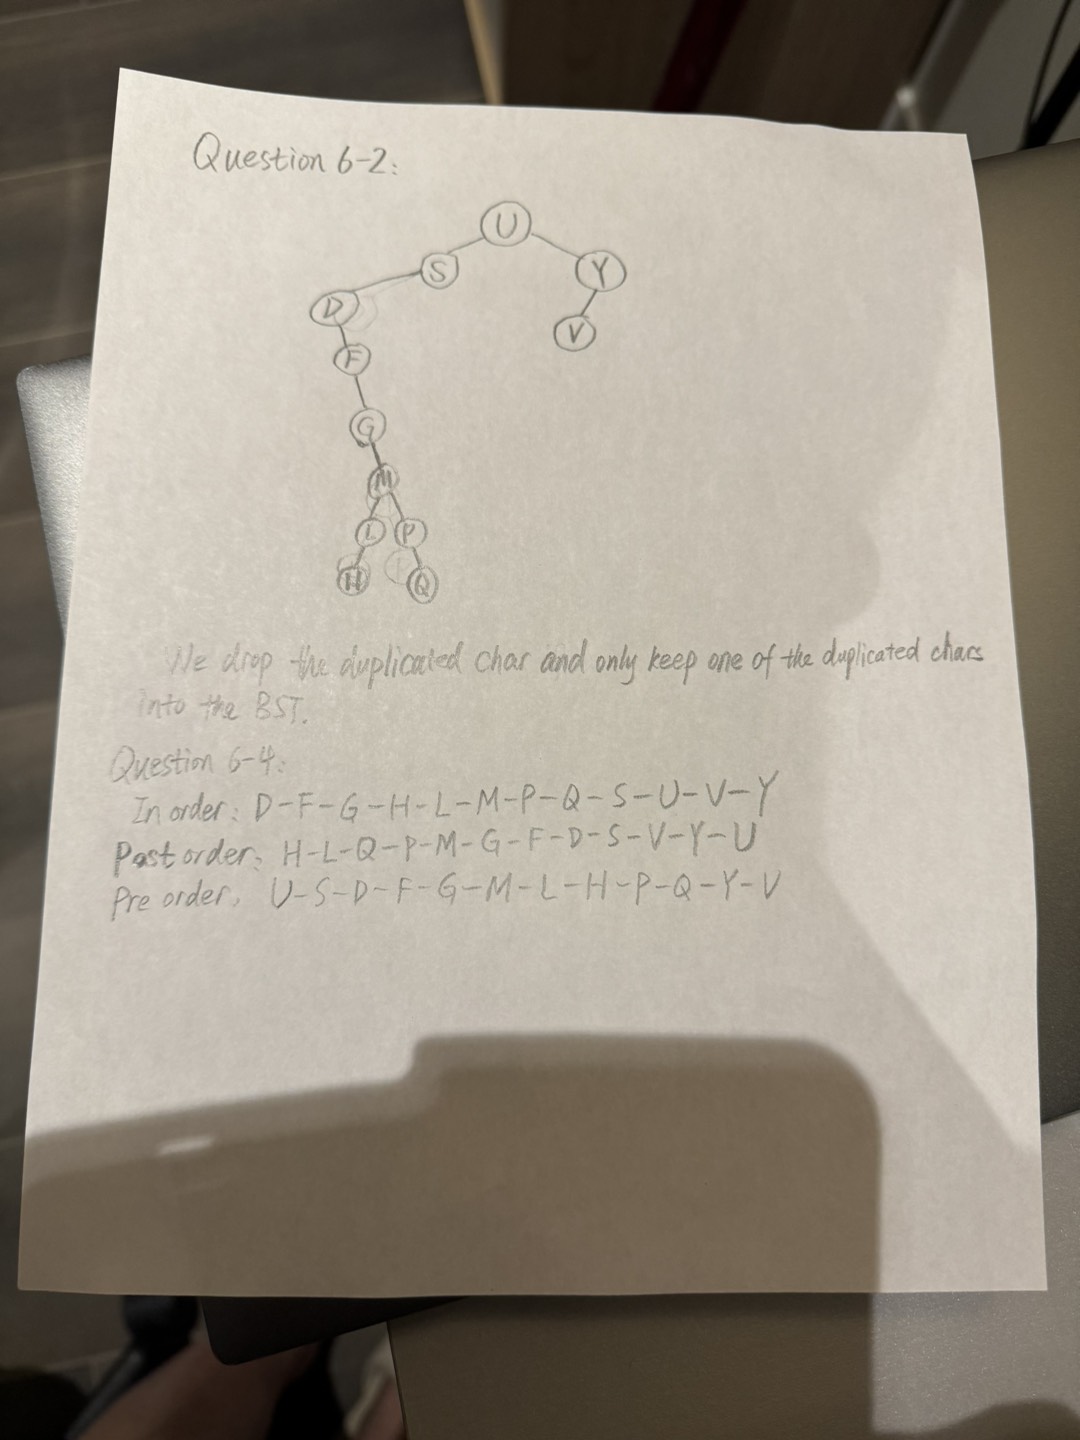 Question 6-2:
U
S
Y
D
V
F
G
M
L P
H Q
We drop the duplicated char and only keep one of the duplicated chars
into the BST.
Question 6-4:
In order: D-F-G-H-L-M-P-Q-S-U-V-Y
Post order: H-L-Q-P-M-G-F-D-S-V-Y-U
Pre order: U-S-D-F-G-M-L-H-P-Q-Y-V